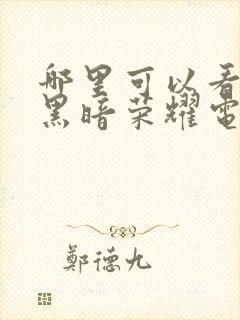 哪里可以看
黑暗荣耀電
鄭德九